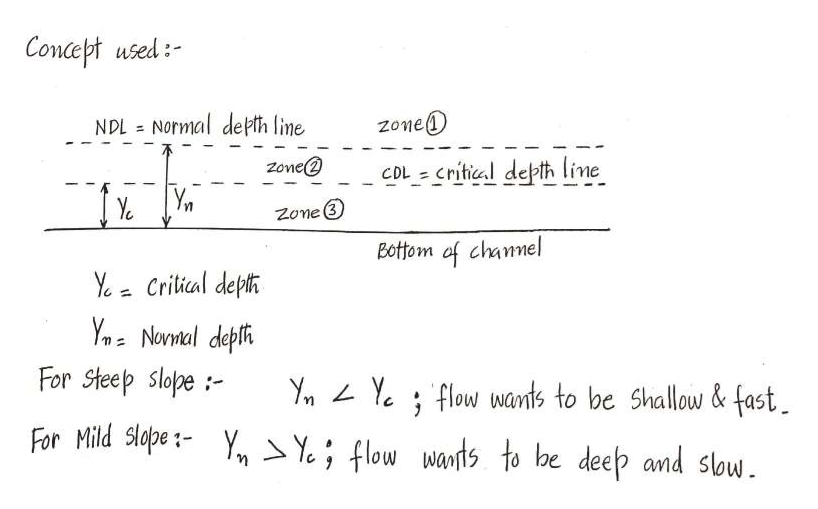 Concept used :-
NDL = Normal depth line zone ①
zone ② CDL = critical depth line
Yc Yn zone ③
Bottom of channel
Yc = Critical depth
Yn = Normal depth
For Steep slope :- Yn < Yc ; flow wants to be shallow & fast.
For Mild slope :- Yn > Yc ; flow wants to be deep and slow.